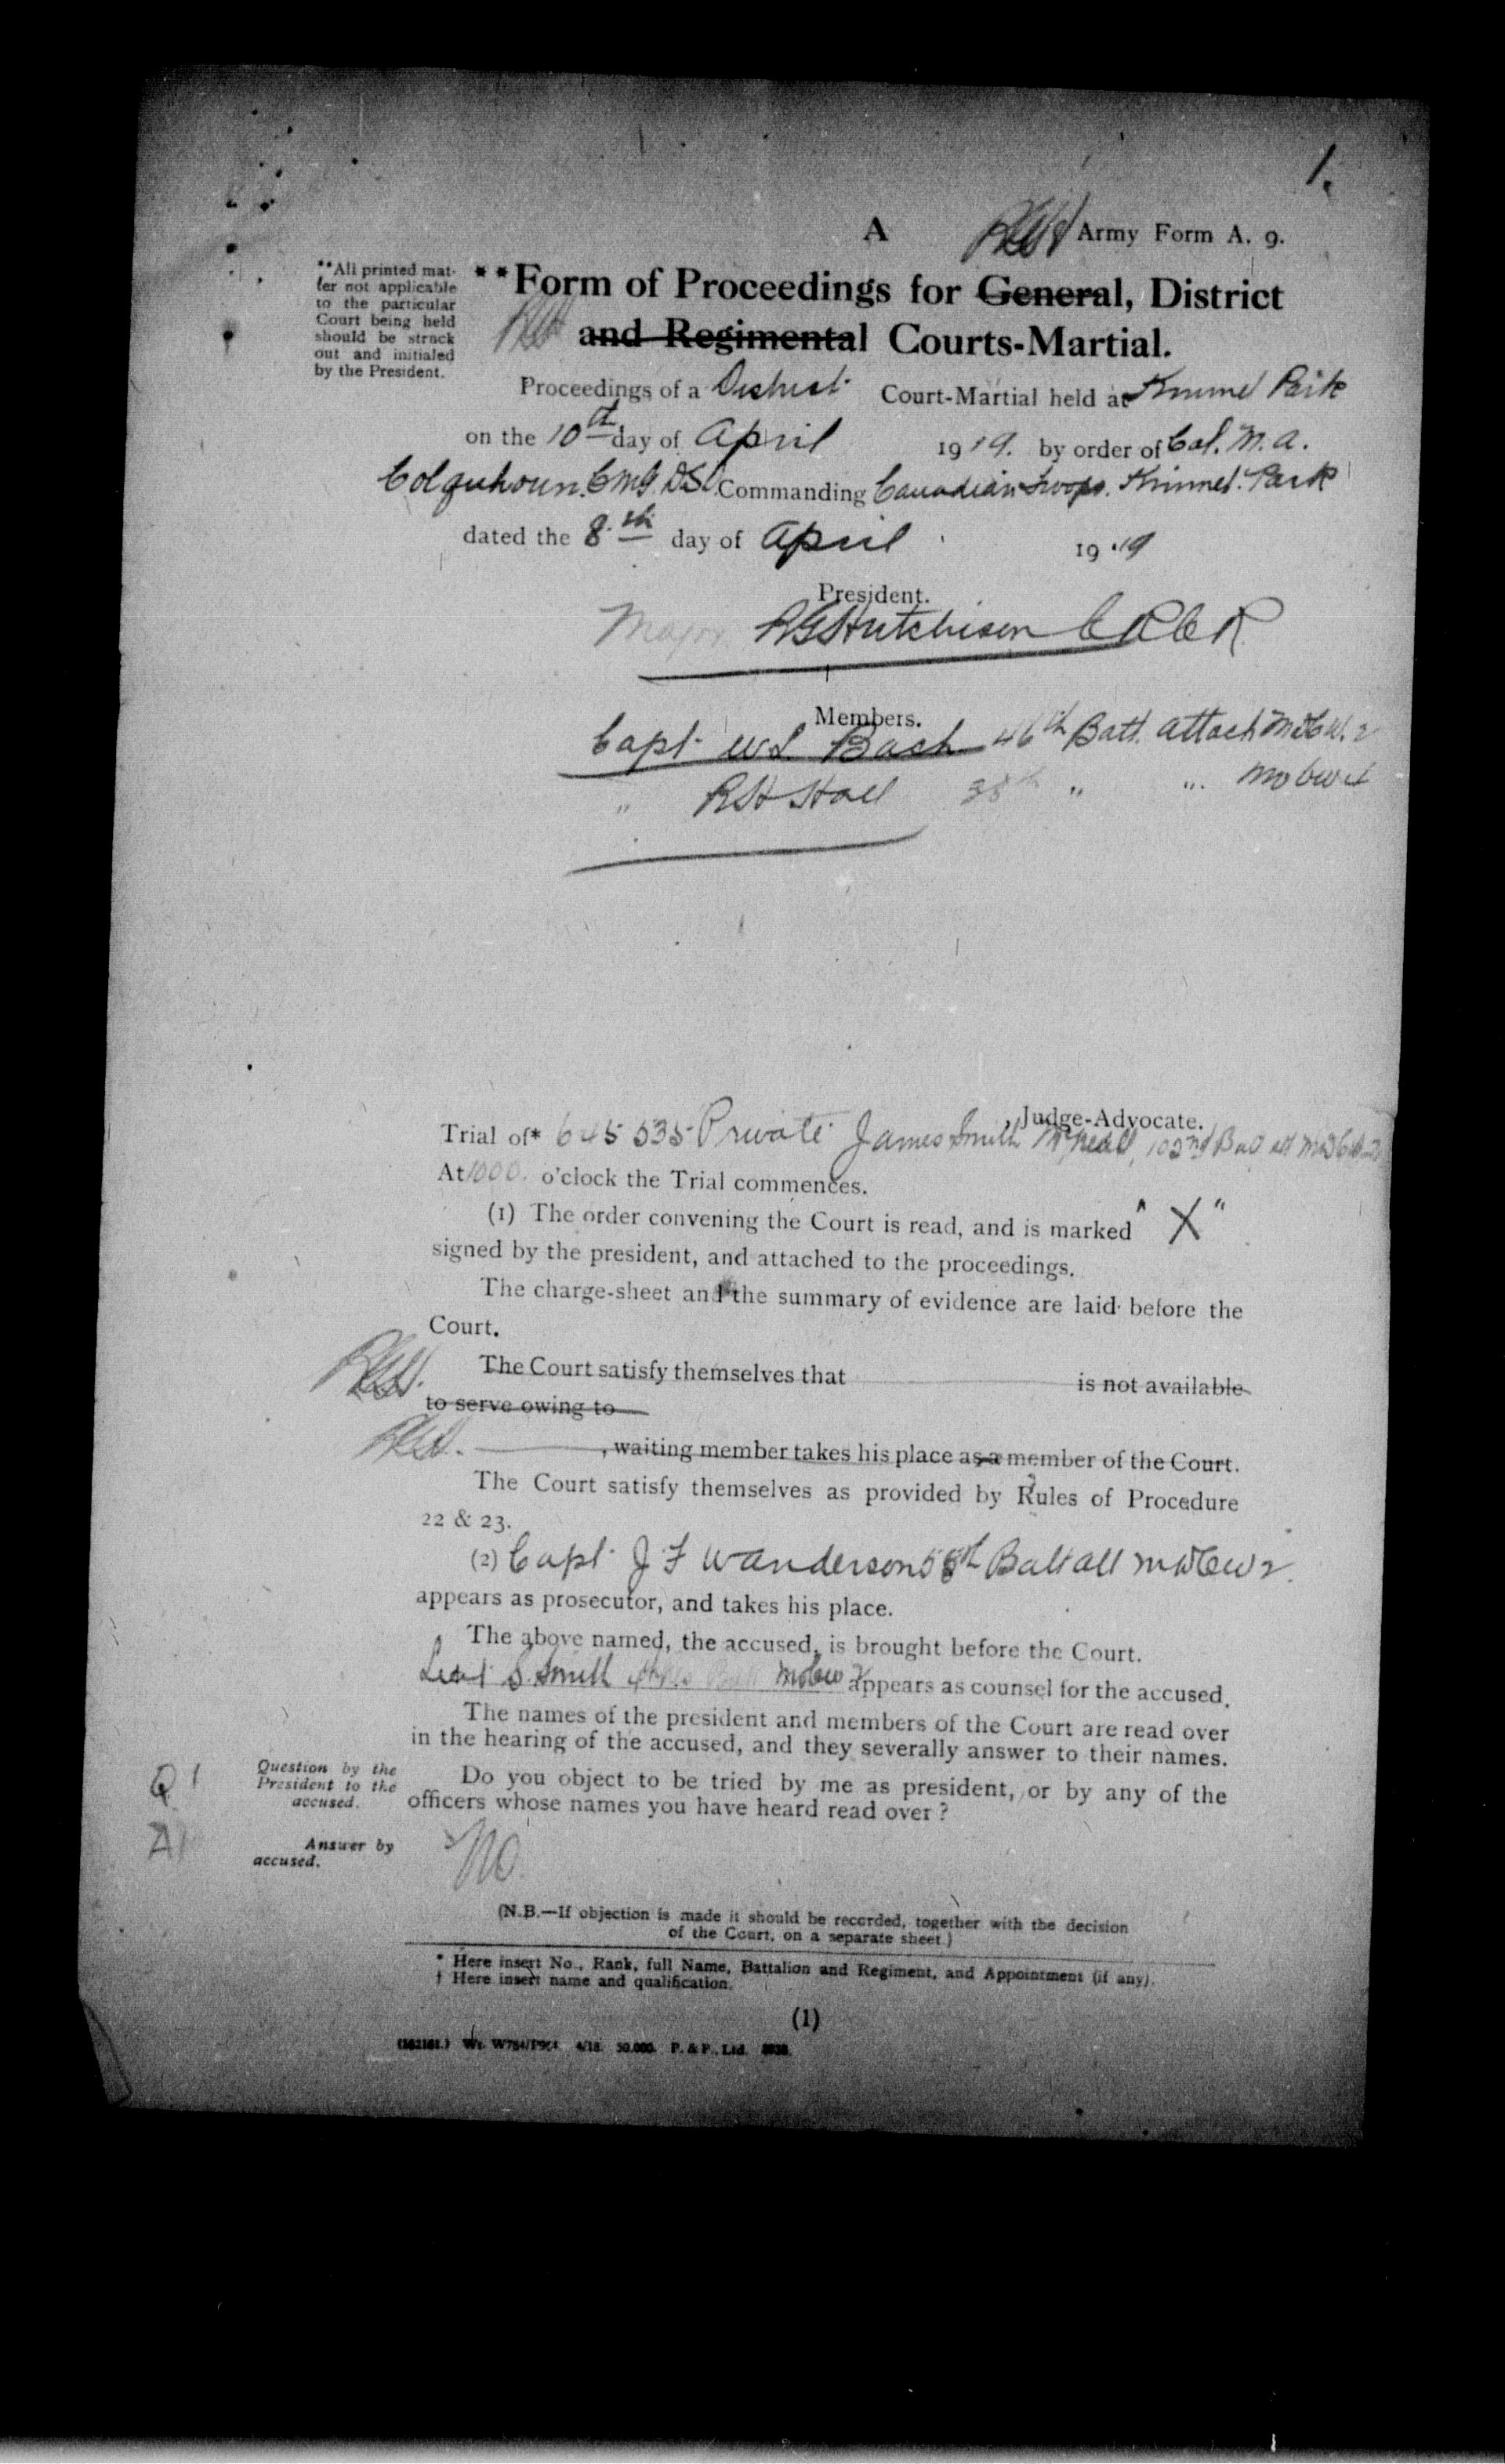 1.
A Army Form A. 9.
**All printed mat-
ter not applicable
to the particular
Court being held
should be struck
out and initialed
by the President.
**Form of Proceedings for General, District
and Regimental Courts-Martial.
Proceedings of a District Court-Martial held at Kinmel Park
on the 10th day of April 1919. by order of Col. M. A.
Colquhoun. C.M.G. D.S.O. Commanding Canadian Troops. Kinmel. Park
dated the 8th day of April 1919
President.
Major RG Hutchison
Members.
Capt. W.S. Bach 46th Batt. attach
" R H Hall 38th " "
Judge-Advocate.
Trial of* 645535 Private James Smith McNeill, 102nd
At 1000. o'clock the Trial commences.
(1) The order convening the Court is read, and is marked "X"
signed by the president, and attached to the proceedings.
The charge-sheet and the summary of evidence are laid before the
Court.
The Court satisfy themselves that is not available
to serve owing to
, waiting member takes his place as a member of the Court.
The Court satisfy themselves as provided by Rules of Procedure
22 & 23.
(2) Capt. J F Wanderson 58th Batt att
appears as prosecutor, and takes his place.
The above named, the accused, is brought before the Court.
Lieut S. Smith appears as counsel for the accused.
The names of the president and members of the Court are read over
in the hearing of the accused, and they severally answer to their names.
Q1 Question by the
President to the
accused.
Do you object to be tried by me as president, or by any of the
officers whose names you have heard read over ?
A1 Answer by
accused.
No.
(N.B.—If objection is made it should be recorded, together with the decision
of the Court, on a separate sheet.)
* Here insert No., Rank, full Name, Battalion and Regiment, and Appointment (if any).
† Here insert name and qualification.
(1)
4/18. 50,000. P. & P., Ltd.